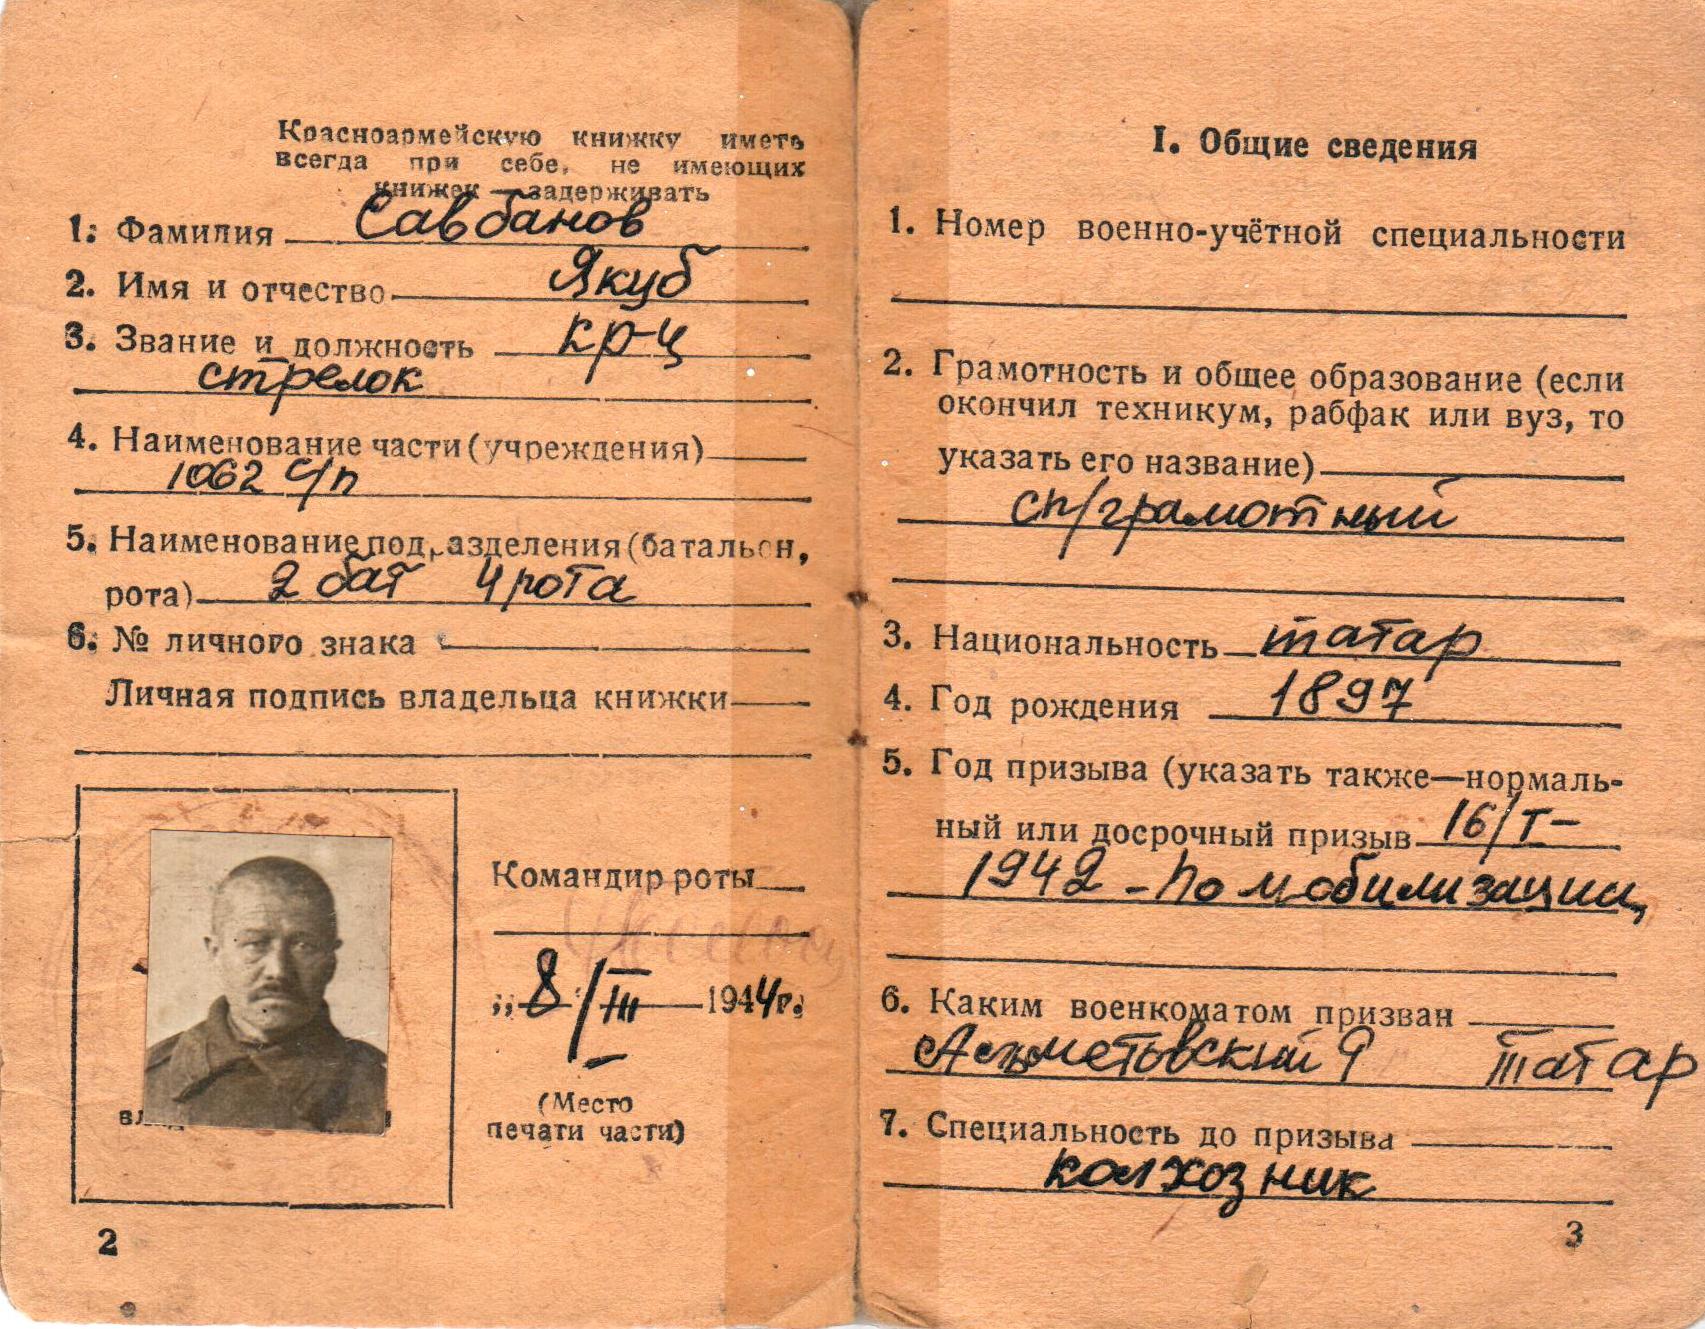 Красноармейскую книжку иметь
всегда при себе, не имеющих
книжек — задерживать
1. Фамилия Савбанов
2. Имя и отчество Якуб
3. Звание и должность кр-ц
стрелок
4. Наименование части (учреждения)
1062 с/п
5. Наименование подразделения (батальон,
рота) 2 бат 4 рота
6. № личного знака
Личная подпись владельца книжки
Командир роты
„8/III 1944г.
(Место
печати части)
2
I. Общие сведения
1. Номер военно-учётной специальности
2. Грамотность и общее образование (если
окончил техникум, рабфак или вуз, то
указать его название)
сп/грамотный
3. Национальность татар
4. Год рождения 1897
5. Год призыва (указать также—нормаль-
ный или досрочный призыв 16/I-
1942 - по мобилизации
6. Каким военкоматом призван
татар
7. Специальность до призыва
колхозник
3